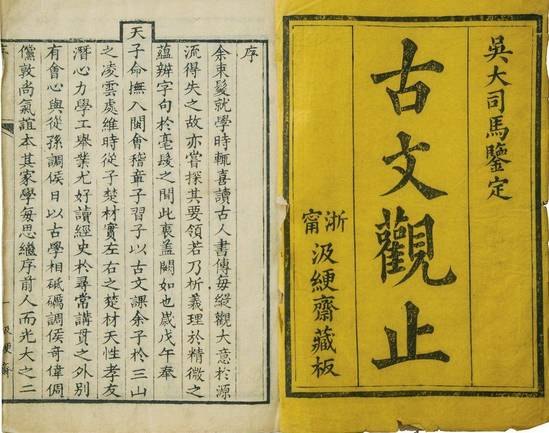 吳大司馬鑒定
古文觀止
浙甯
汲綆齋藏板
序
余束髮就學時輒喜讀古人書傳每縱觀大意於源
流得失之故亦嘗探其要領若乃析義理於精微之
蘊辨字句於毫髮之間此衷蓋闕如也歲戊午奉
天子命撫八閩會稽章子習子以古文課余子於三山
之凌雲處維時從子楚材實左右之楚材天性孝友
潛心力學工舉業尤好讀經史於尋常講貫之外別
有會心與從孫調侯日以古學相砥礪調侯奇偉倜
儻敦尚氣誼本其家學每思繼序前人而光大之二
序
一
汲綆齋